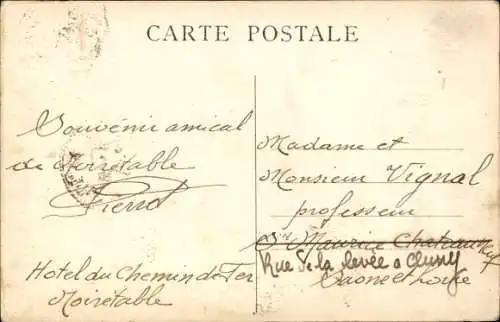 CARTE POSTALE
Souvenir amical
de Noirétable
Pierrot
Hotel du Chemin de Fer
Noirétable
Madame et
Monsieur Vignal
professeur
St Maurice Chateauneuf
Rue de la Levée a Cluny
Saone et Loire